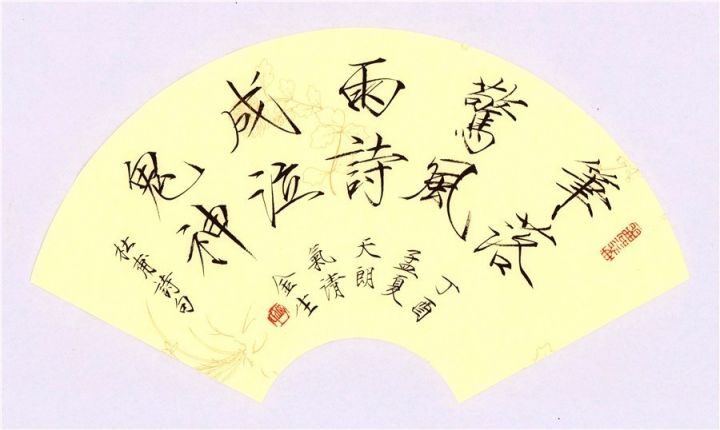 筆落
驚風
雨詩
成泣
鬼神
杜甫詩句
丁酉
孟夏
天朗
氣清
金生